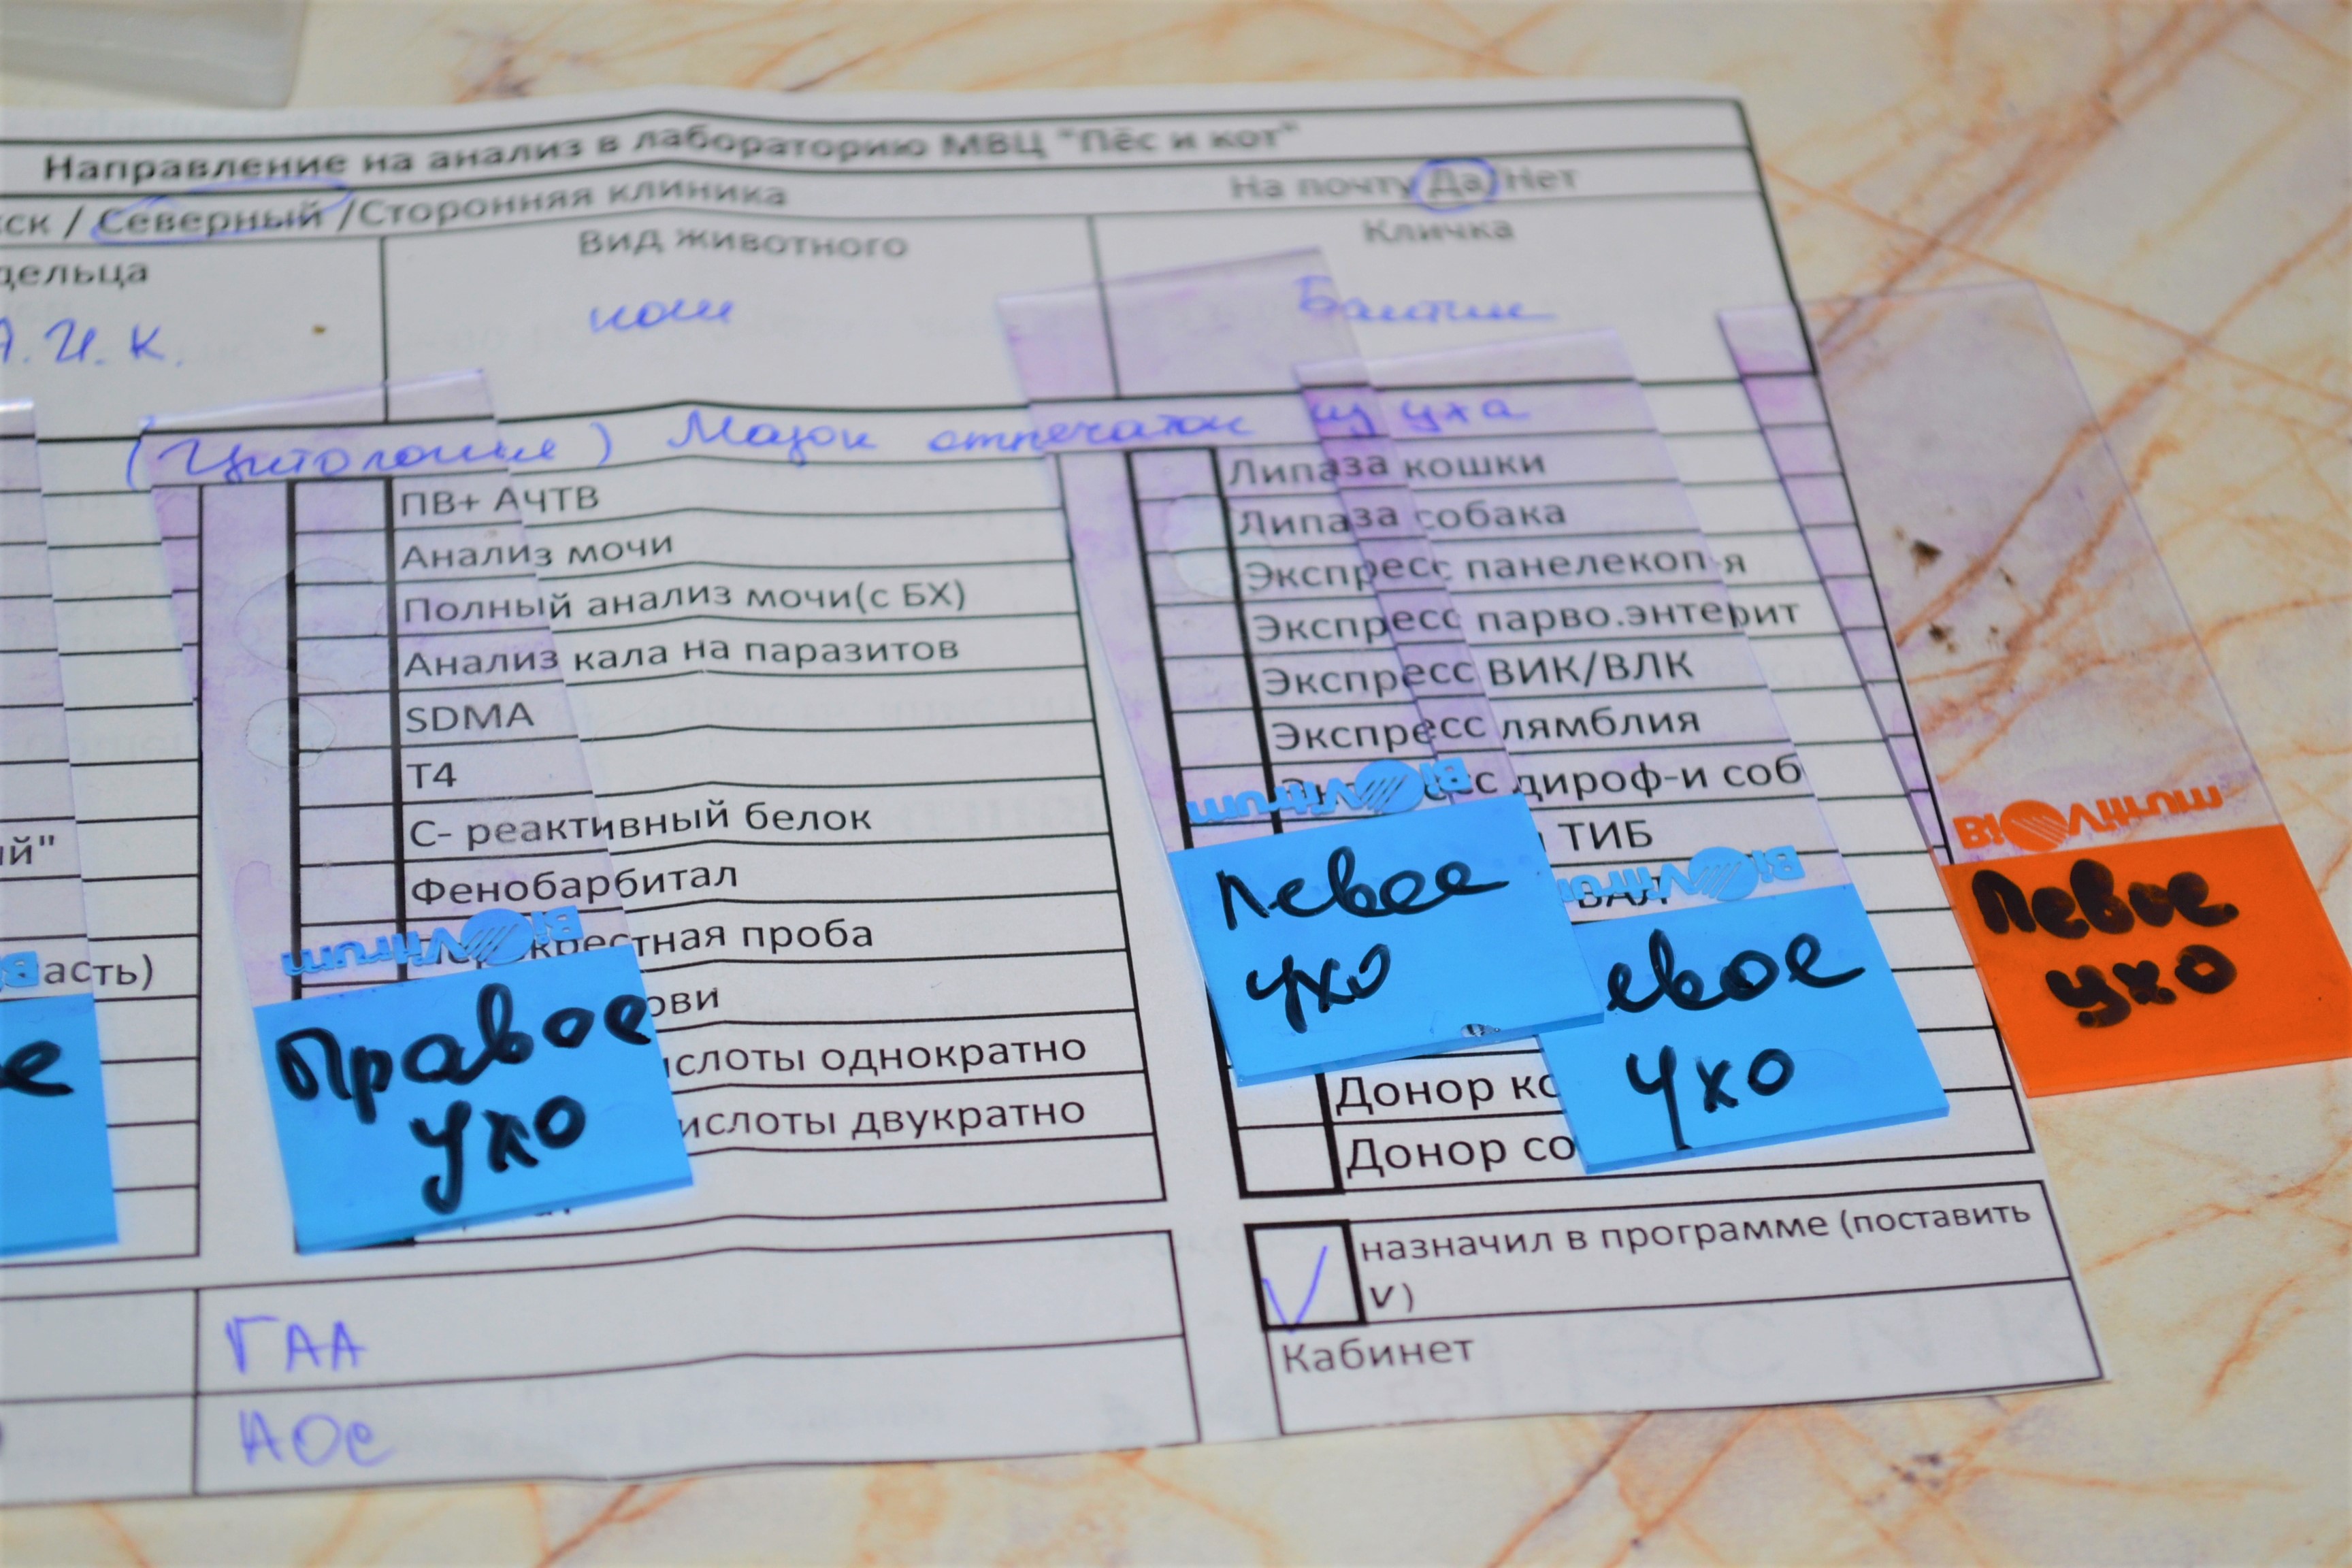 Направление на анализ в лабораторию МВЦ "Пёс и кот"
ск / Северный /Сторонняя клиника
На почту Да Нет
дельца
Вид животного
Кличка
А.И.К.
кош
(Цитология) Мазок отпечаток из уха
ПВ+ АЧТВ
Анализ мочи
Полный анализ мочи(с БХ)
Анализ кала на паразитов
SDMA
Т4
С- реактивный белок
Фенобарбитал
крестная проба
ови
ислоты однократно
ислоты двукратно
Липаза кошки
Липаза собака
Экспресс панелекоп-я
Экспресс парво.энтерит
Экспресс ВИК/ВЛК
Экспресс лямблия
Экспресс дироф-и соб
ТИБ
ВАЛ
Донор ко
Донор со
ий"
асть)
BiOVitrum
Правое
ухо
BiOVitrum
Левое
ухо
BiOVitrum
евое
ухо
BiOVitrum
Левое
ухо
е
V назначил в программе (поставить
v)
Кабинет
ГАА
АОС